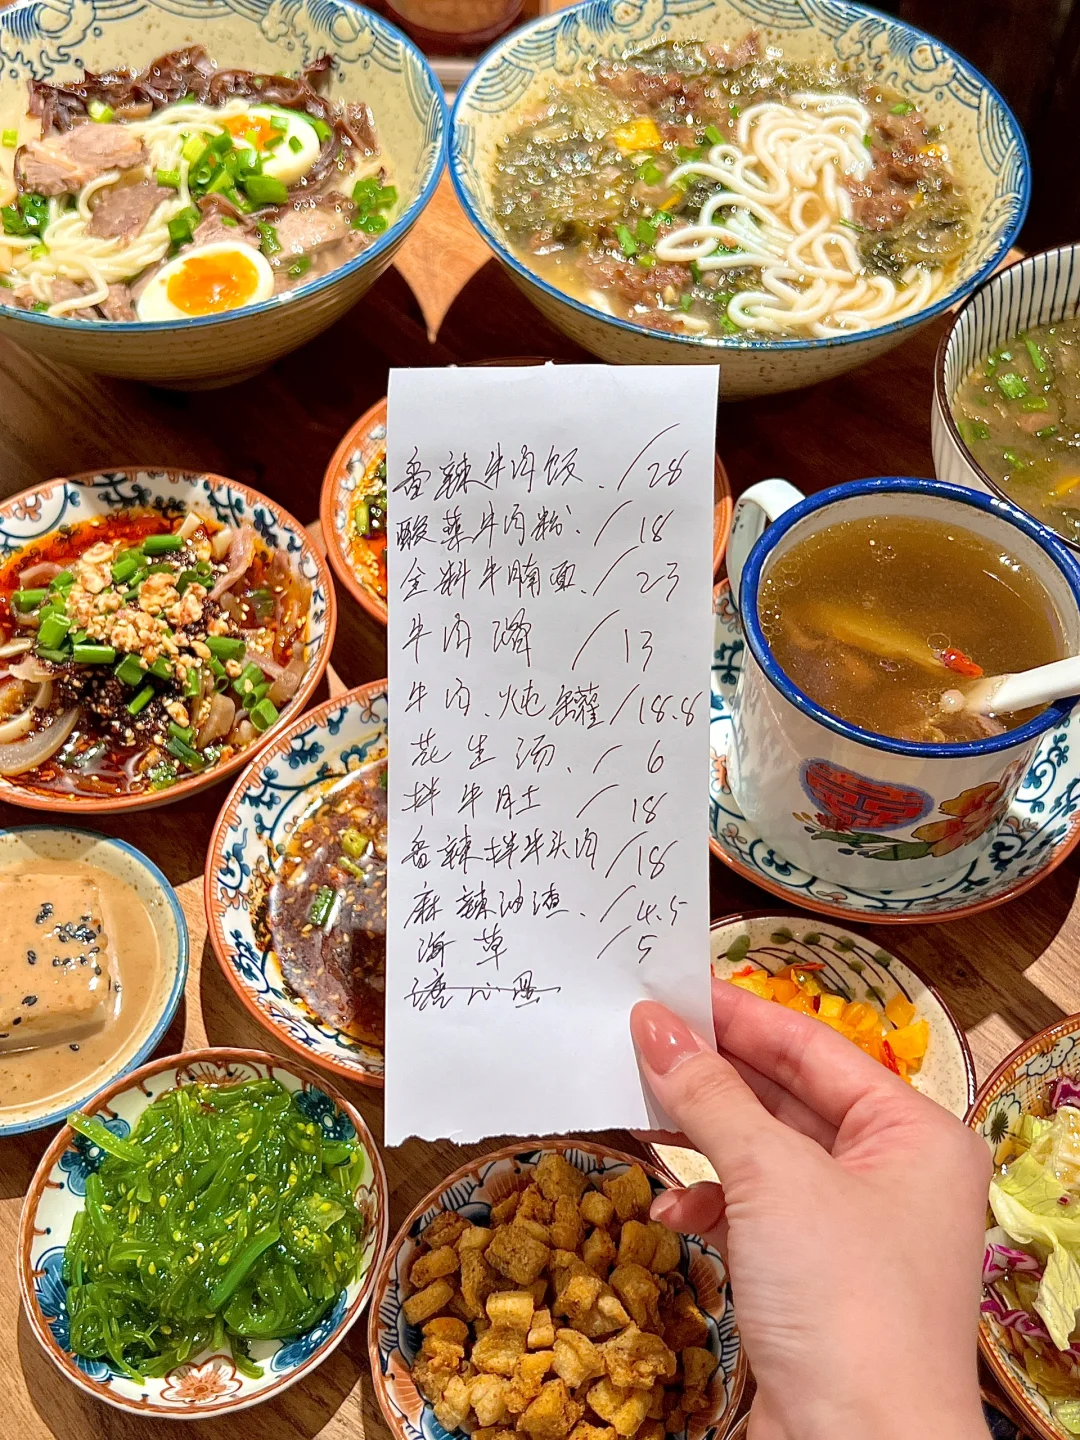 香辣牛肉饭. /28
酸菜牛肉粉. /18
全料牛腩面. /23
牛肉 /13
牛肉.炖罐 /18.8
花生汤. /6
拌牛肚 /18
香辣拌牛头肉 /18
麻辣油渣. /4.5
海草 /5